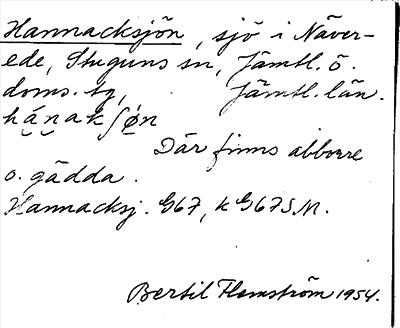 Hannacksjön, sjö i Näver-
ede, Stuguns sn, Jämtl. ö.
doms. tg, Jämtl. län.
há̱n̮akʃǿ̱n
Där finns abborre
o. gädda.
Hannacksj. G67, k G67S.M.
Bertil Flemström 1954.